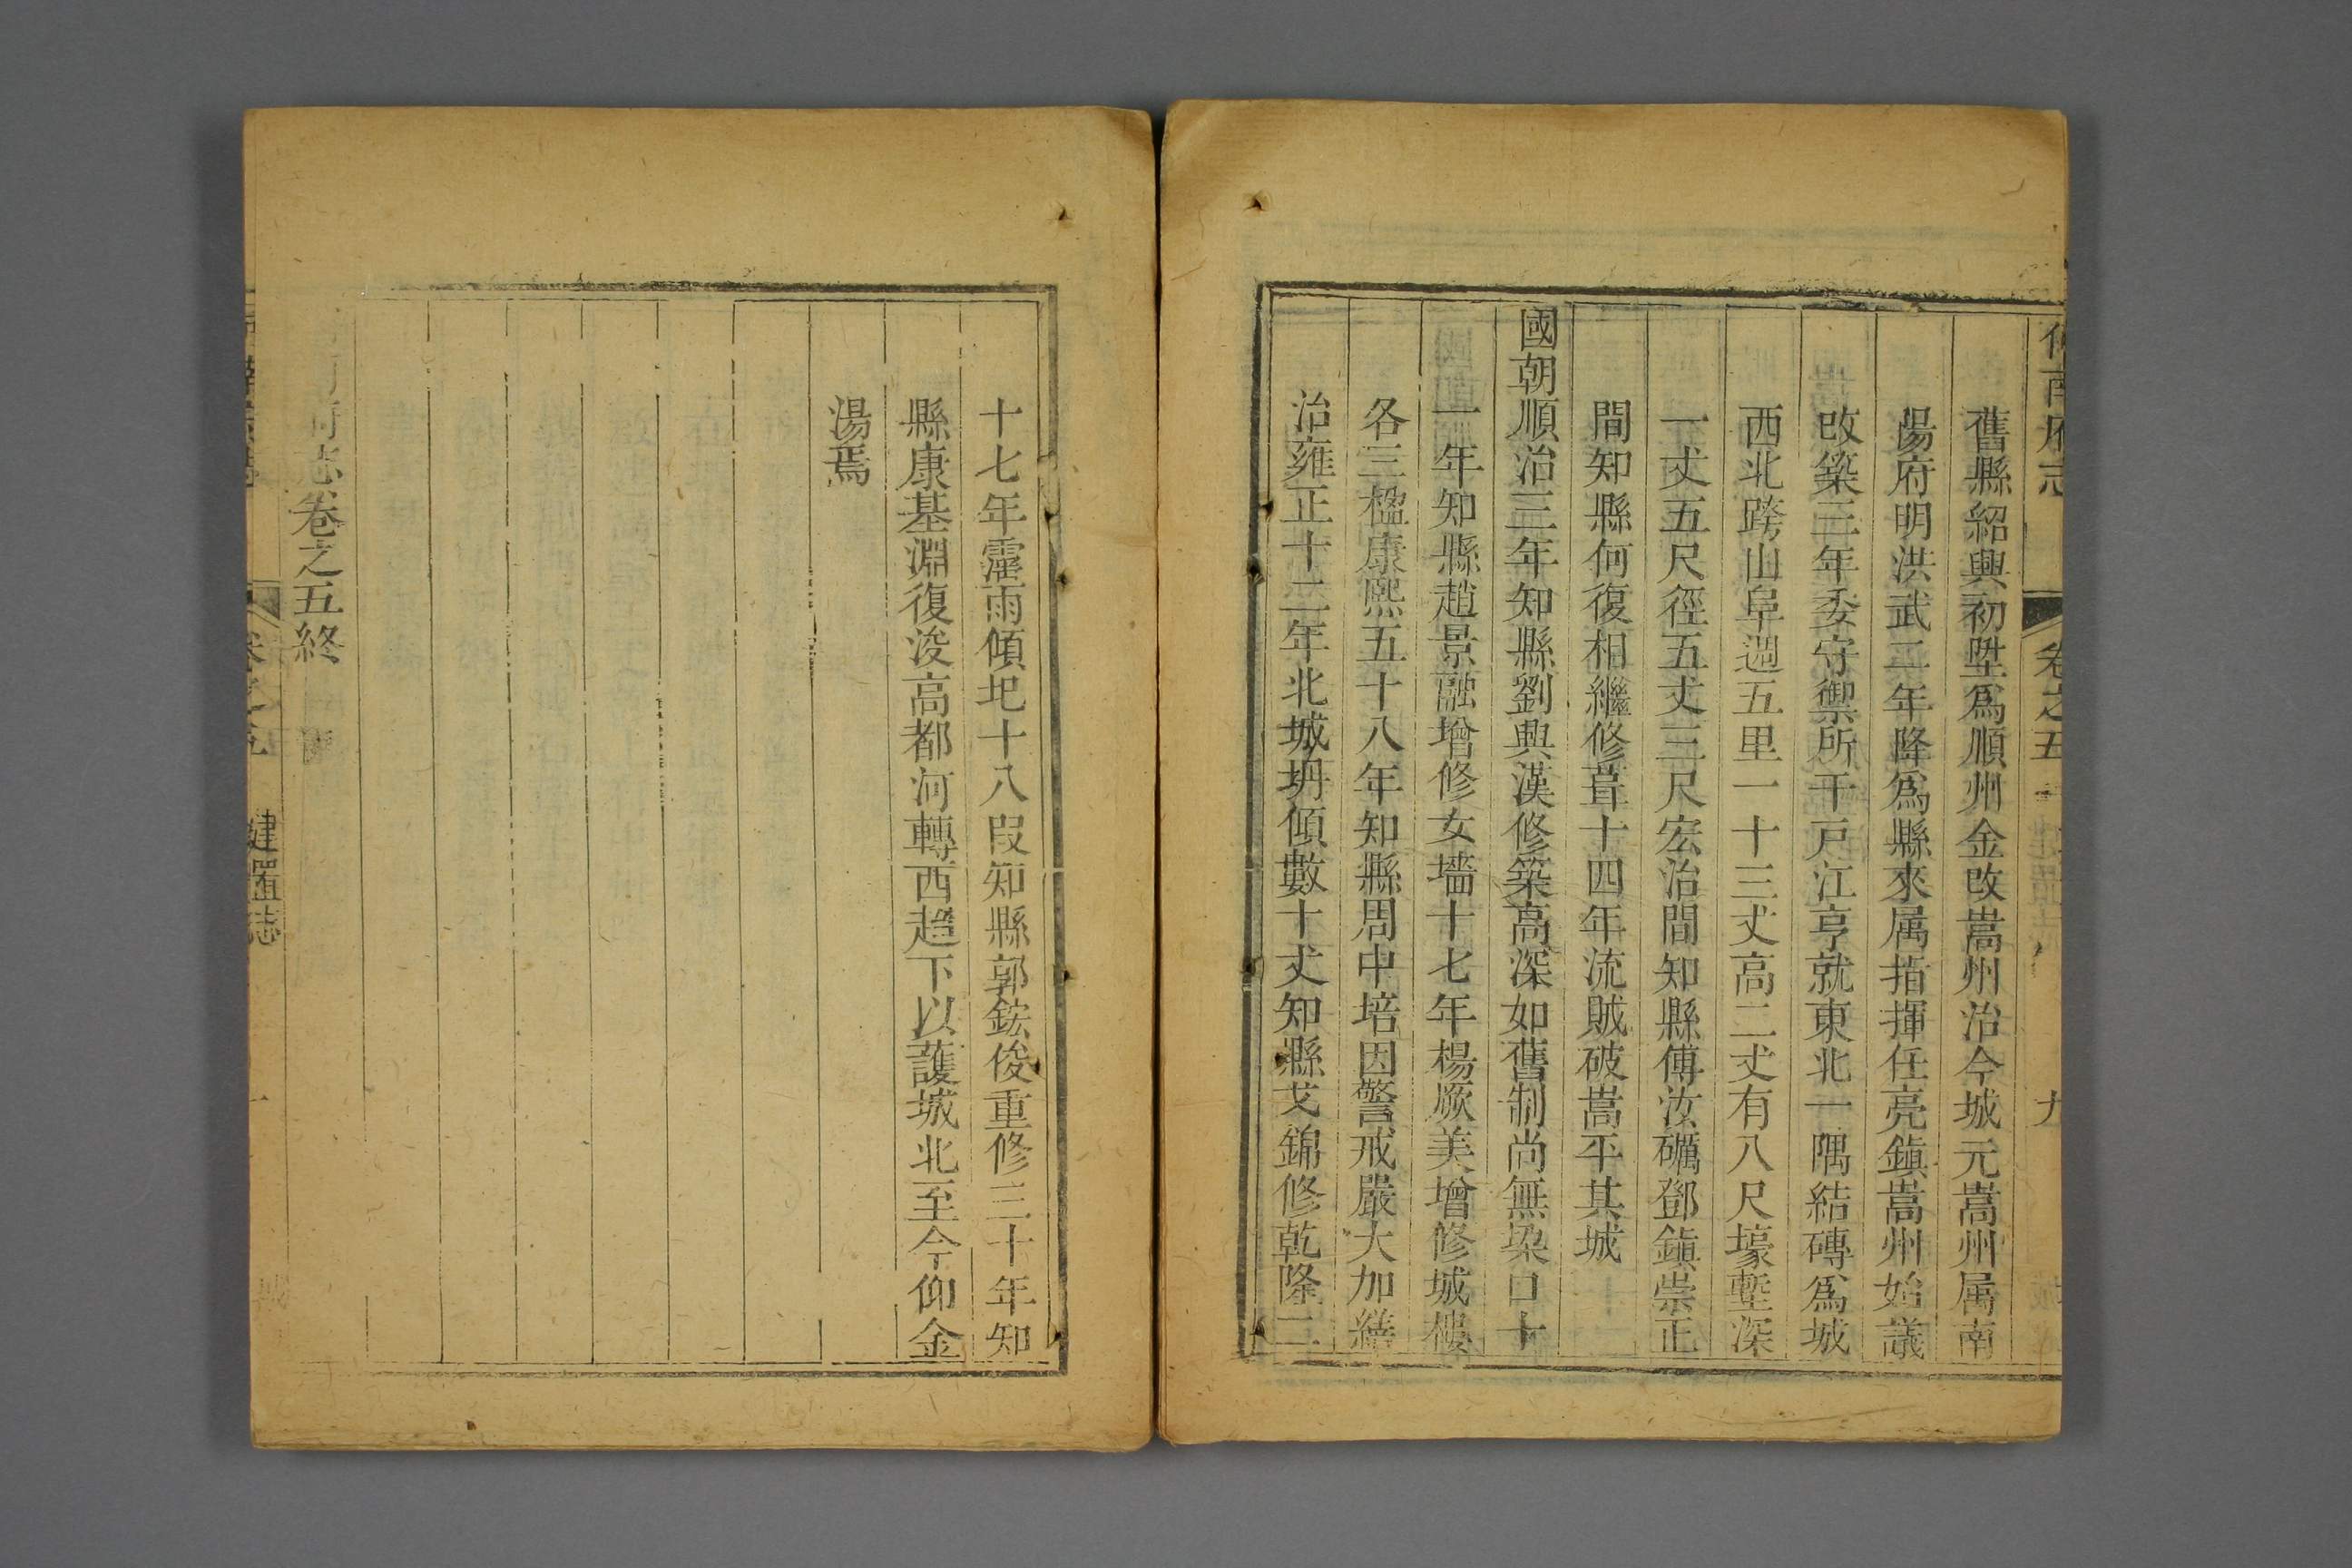 河南府志 卷之五 九
舊縣紹興初陞爲順州金改嵩州治今城元嵩州属南
陽府明洪武二年降爲縣來属指揮任亮鎭嵩州始議
改築三年委守禦所千戸江亨就東北一隅結磚爲城
西北跨山阜週五里一十三丈高二丈有八尺壕塹深
一丈五尺徑五丈三尺宏治間知縣傅汝礪鄧鎭崇正
間知縣何復相繼修葺十四年流賊破嵩平其城
國朝順治三年知縣劉興漢修築高深如舊制尚無垜口十
一年知縣趙景融增修女墻十七年楊厥美增修城樓
各三楹康熙五十八年知縣周中培因警戒嚴大加繕
治雍正十二年北城坍傾數十丈知縣戈錦修乾隆二
十七年霪雨傾圯十八年知縣郭鋐俊重修三十年知
縣康基淵復浚高都河轉西趨下以護城北至今仰金
湯焉
府志卷之五終
卷之五 建置志